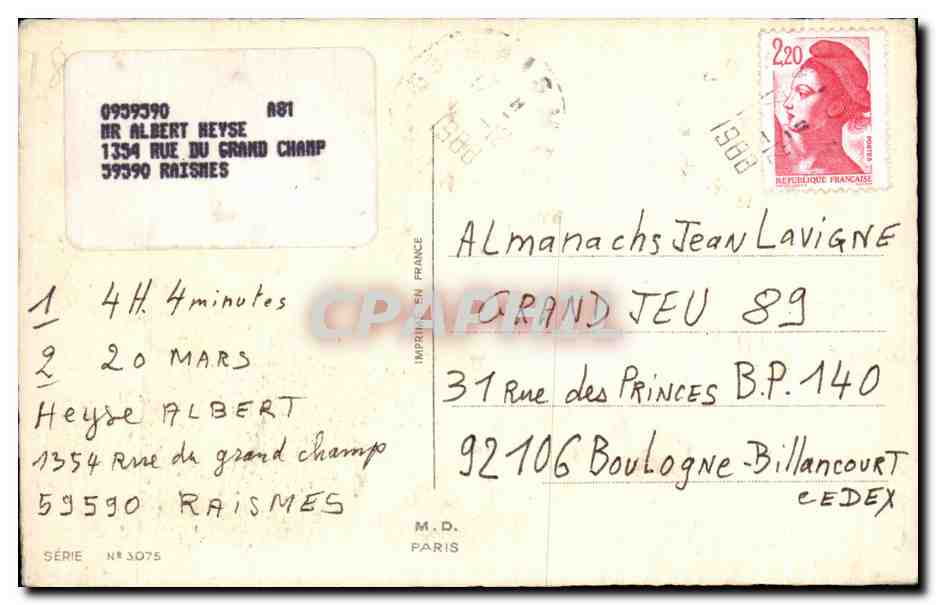 0959590 A81
MR ALBERT HEYSE
1354 RUE DU GRAND CHAMP
59590 RAISMES
1 4H. 4 minutes
2 20 MARS
Heyse ALBERT
1354 Rue du grand champ
59590 RAISMES
SÉRIE Nº 3.075
IMPRIMÉ EN FRANCE
M.D.
PARIS
CPAPHIL
1988
2,20
1988
POSTES
REPUBLIQUE FRANCAISE
ALmanachs Jean LaviGNE
GRAND JEU 89
31 Rue des PRINCES B.P. 140
92106 BouLogne-Billancourt
CEDEX